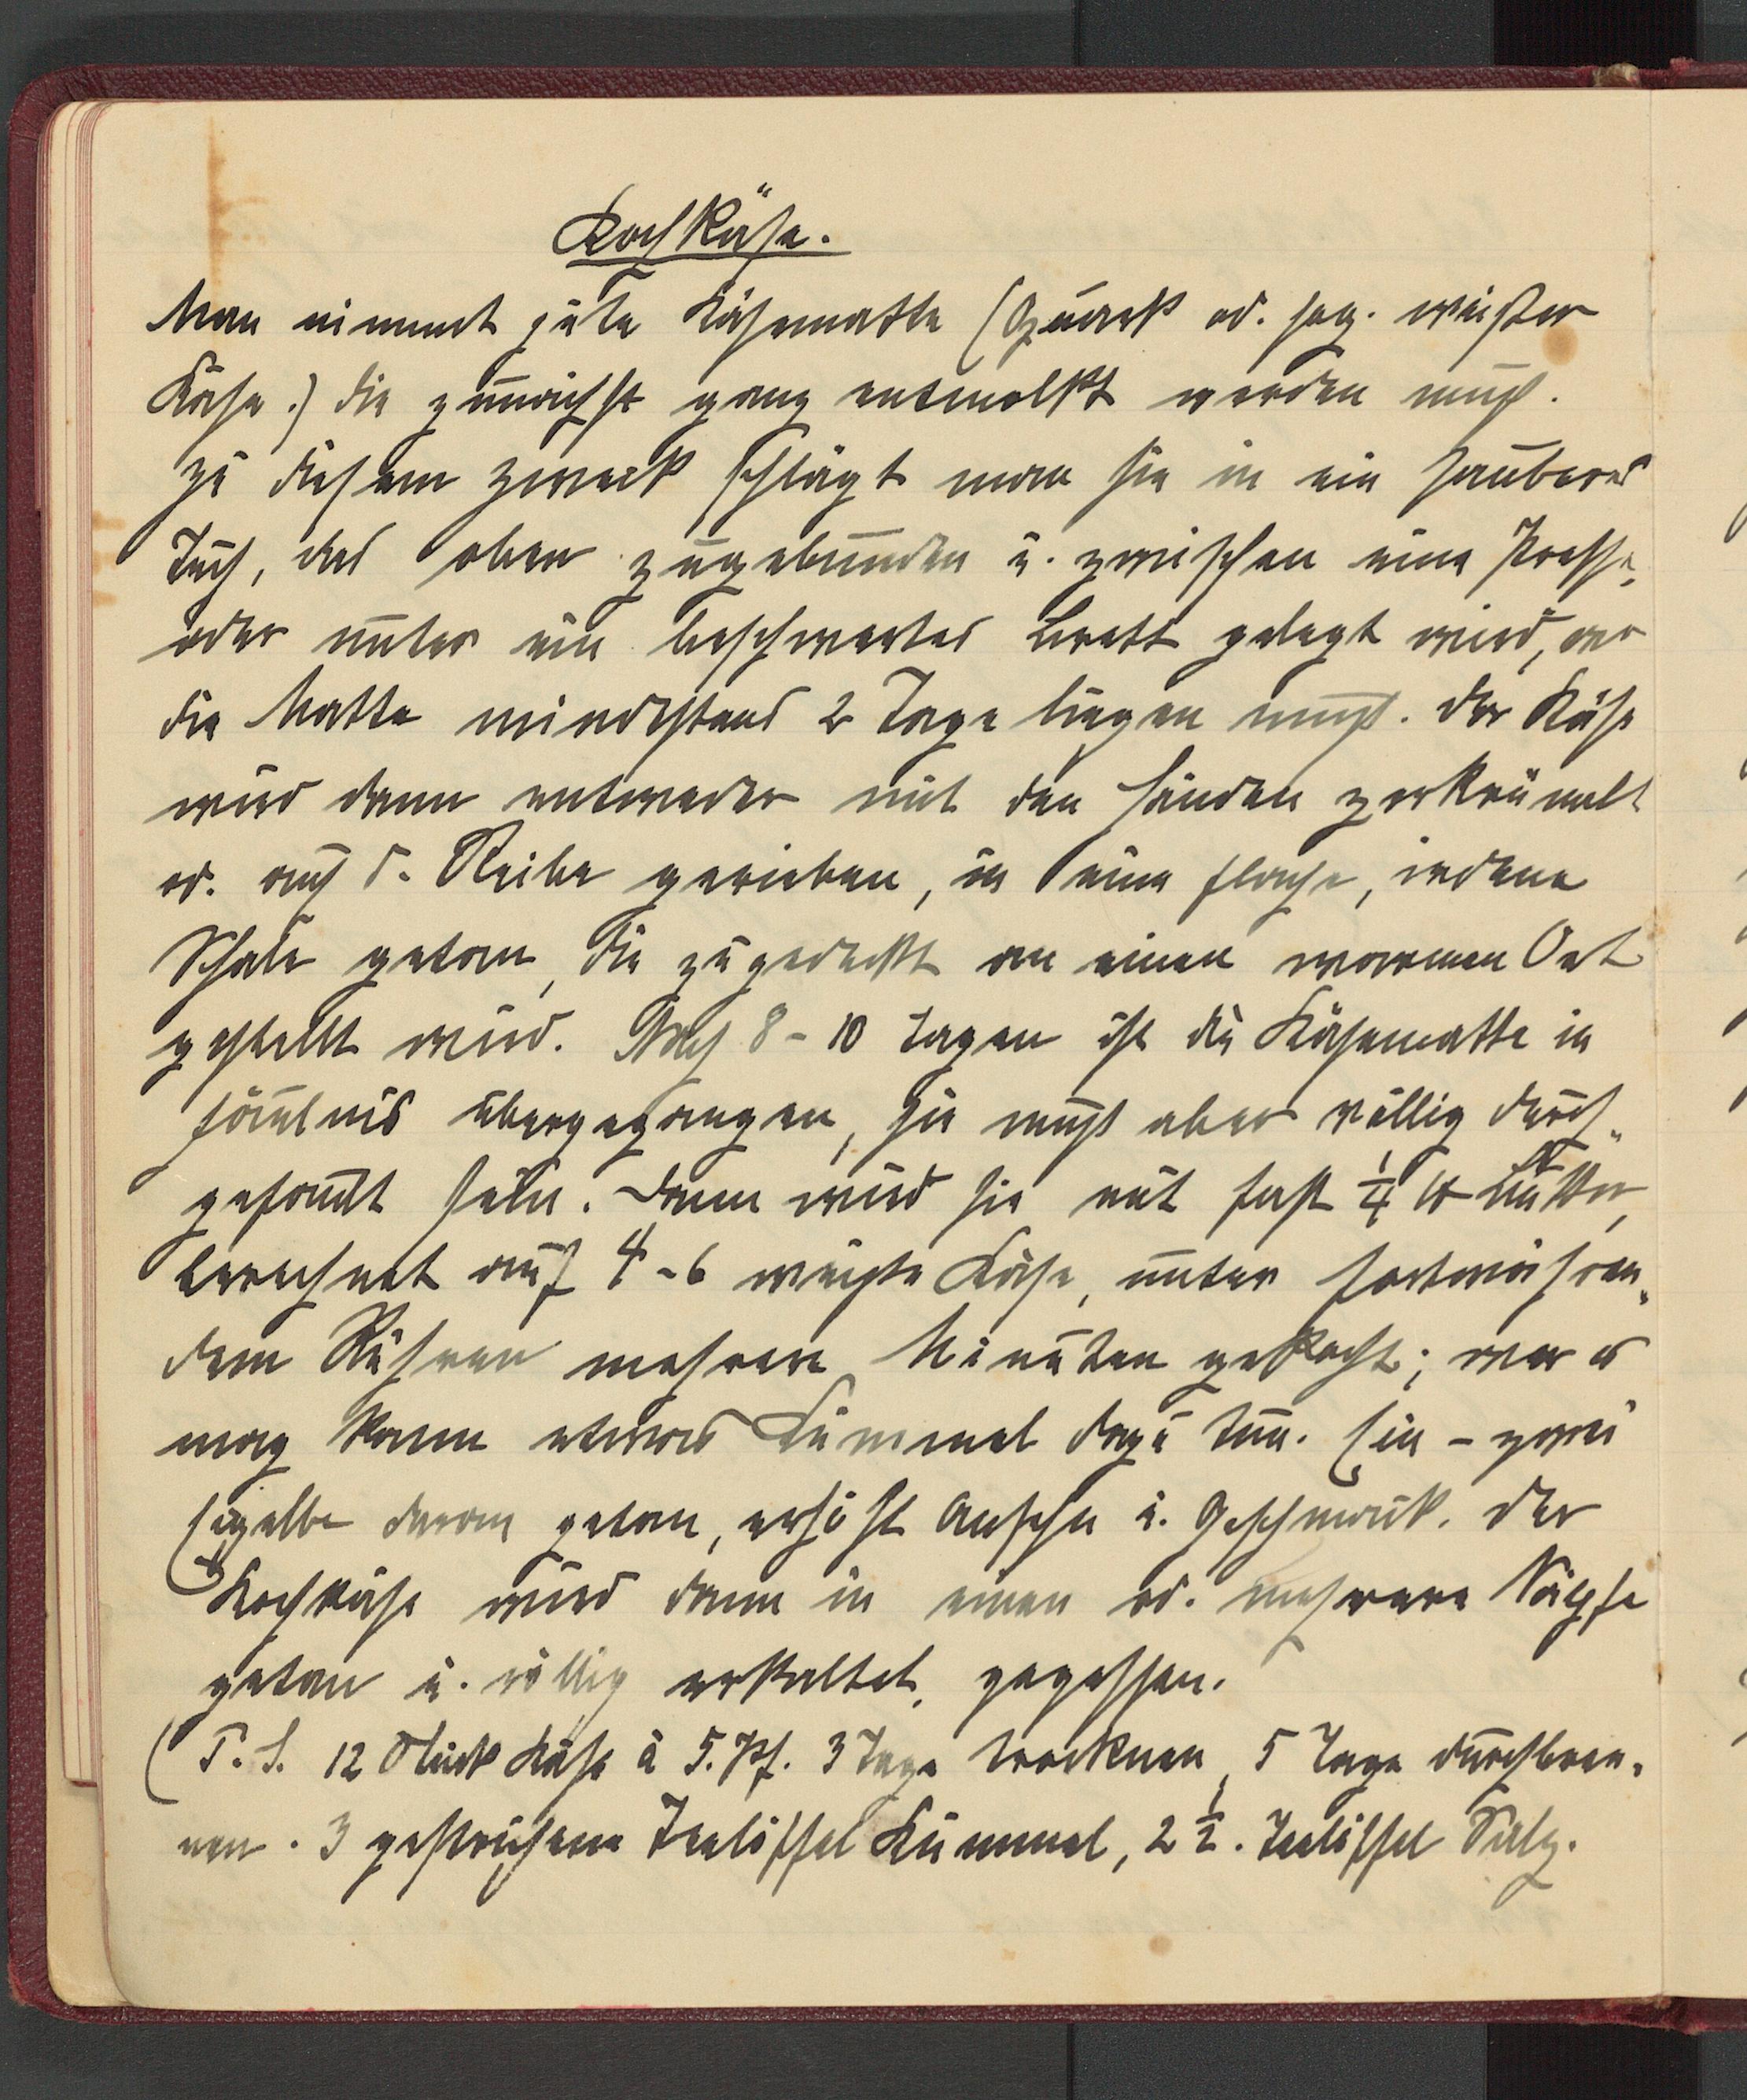 Kochkäse.
Man nimmt gute Käsematte (Quark od. sog. weißer
Käse.) die zunächst ganz entmolkt werden muß.
Zu diesem Zweck schlägt man sie in ein sauberes
Tuch, das oben zugebunden u. zwischen eine Presse,
oder unter ein beschwertes Brett gelegt wird, wo
die Matte mindestens 2 Tage liegen muß. Der Käse
wird dann entweder mit den Händen zerkrümelt
od. auf d. Reibe gerieben, in eine flache, irdene
Schale getan, die zugedeckt an einen warmen Ort
gestellt wird. Nach 8-10 Tagen ist die Käsematte in
Fäulnis übergegangen, sie muß aber völlig durch-
gefault sein. Dann wird sie mit fast ¼ ℔ Butter,
berechnet auf 4-6 weiße Käse, unter fortwähren-
dem Rühren mehrere Minuten gekocht; wer es
mag kann etwas Kümmel dazu tun. Ein - zwei
Eigelbe daran getan, erhöht Ansehn u. Geschmack. Der
Kochkäse wird dann in einen od. mehrere Näpfe
getan u. völlig erkaltet, gegessen.
(P.S. 12 Stück Käse à 5. Pf. 3 Tage trocknen, 5 Tage durchbren-
nen. 3 gestrichene Teelöffel Kümmel, 2 ½. Teelöffel Salz.